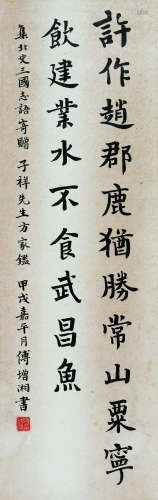 許作趙郡鹿猶勝常山粟寧
飲建業水不食武昌魚
集北史三國志語寄贈 子祥先生方家鑑 甲戌嘉平月傅增湘書